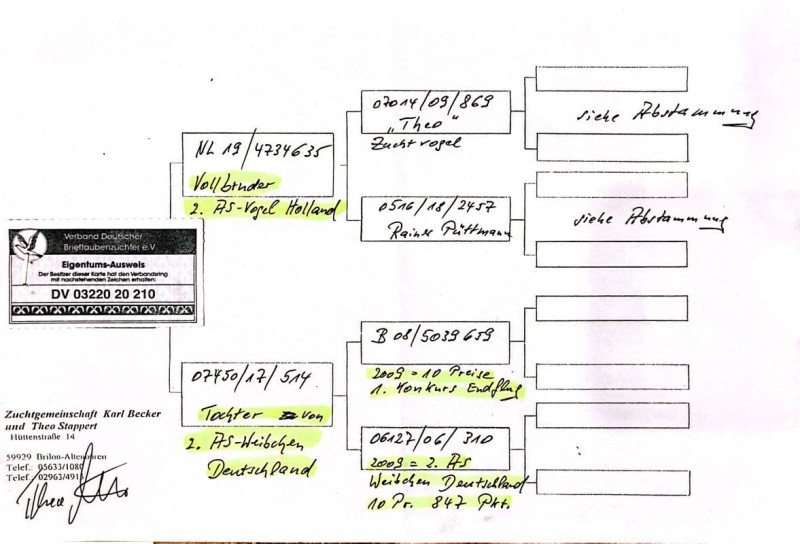 07014/09/869
„Theo"
Zuchtvogel
siehe Abstammung
NL 19/4734635
Vollbruder
2. AS-Vogel Holland
0516/18/2457
Rainer Püttmann
siehe Abstammung
Verband Deutscher
Brieftaubenzüchter e.V.
Eigentums-Ausweis
Der Besitzer dieser Karte hat den Verbandsring
mit nachstehenden Zeichen erhalten:
DV 03220 20 210
B 08/5039659
2009 = 10 Preise
1. Konkurs Endflug
07450/17/514
Tochter von
2. AS-Weibchen
Deutschland
06127/06/310
2009 = 2. AS
Weibchen Deutschland
10 Pr. 847 Pkt.
Zuchtgemeinschaft Karl Becker
und Theo Stappert
Hüttenstraße 14
59929 Brilon-Altenbüren
Telef.: 05633/1080
Telef.: 02963/491
Theo